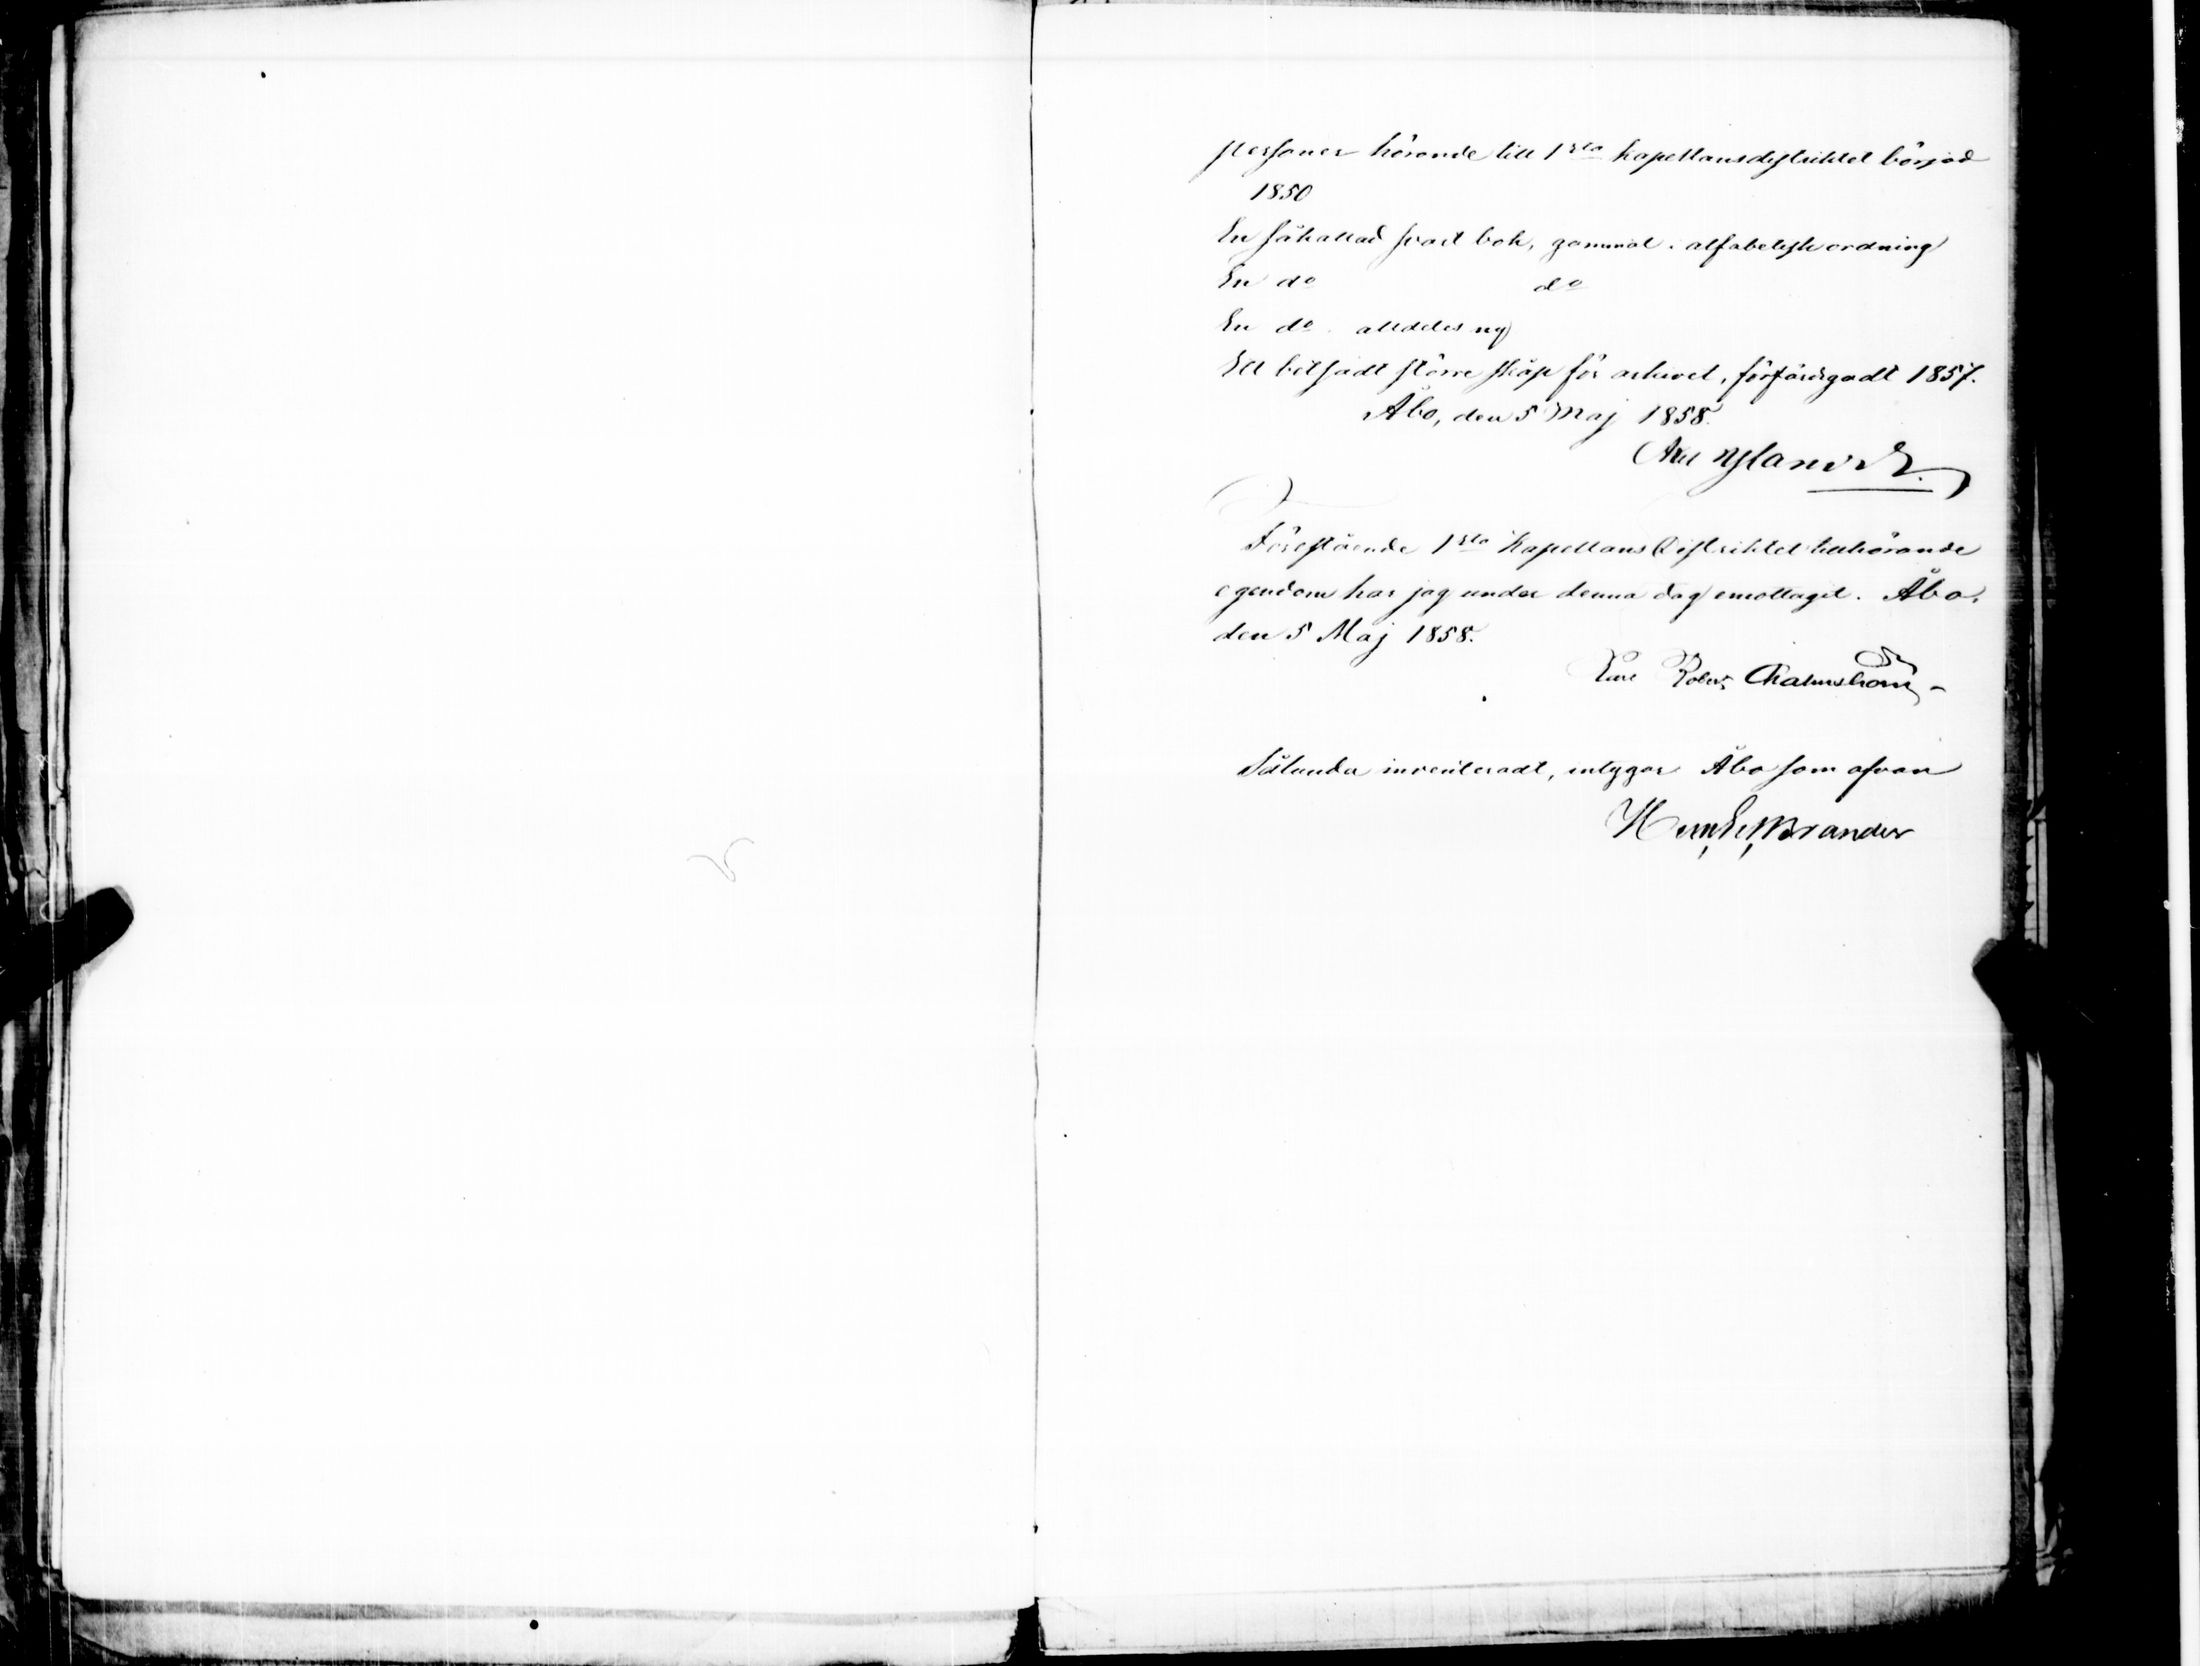 personer hörande till 1sta kapellansdistriktet börjad
1850
En såkallad svart bok, gammal i alfabetisk ordning
En do do
En do alldeles ny
Ett betsadt större skåp för arkivet, förfärdigadt 1857.
Åbo, den 5 Maj 1858.
Axel Nylander
Förestående 1sta Kapellans Distriktet tillhörande
egendom har jag under denna dag emottagit. Åbo,
den 5 Maj 1858.
Karl Robert Malmström
Sålunda inventeradt, intygar Åbo som ofvan
Brander